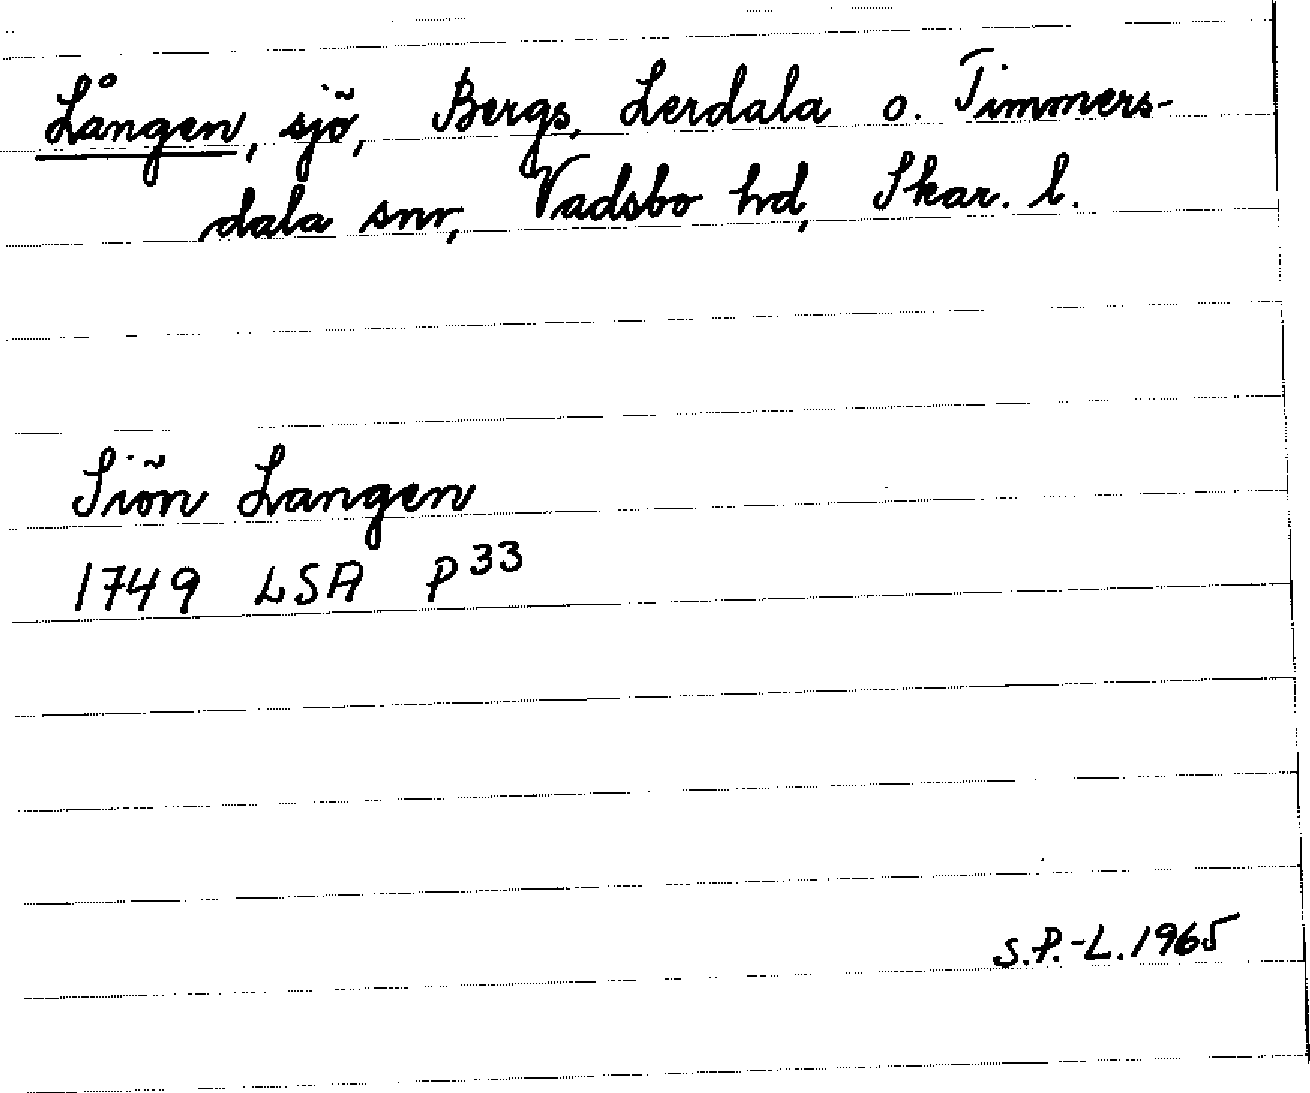 Lången, sjö, Bergs, Lerdala o. Timmers-
dala snr, Vadsbo hd, Skar. l.
Siön Langen
1749 LSA P 33
S.P.-L. 1965